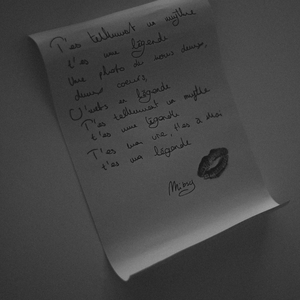 T'es tellement un mythe
t'es une légende
Une photo de nous deux,
deux coeurs
légende
T'es tellement un mythe
t'es une légende
T'es ma vie, t'es
t'es ma légende